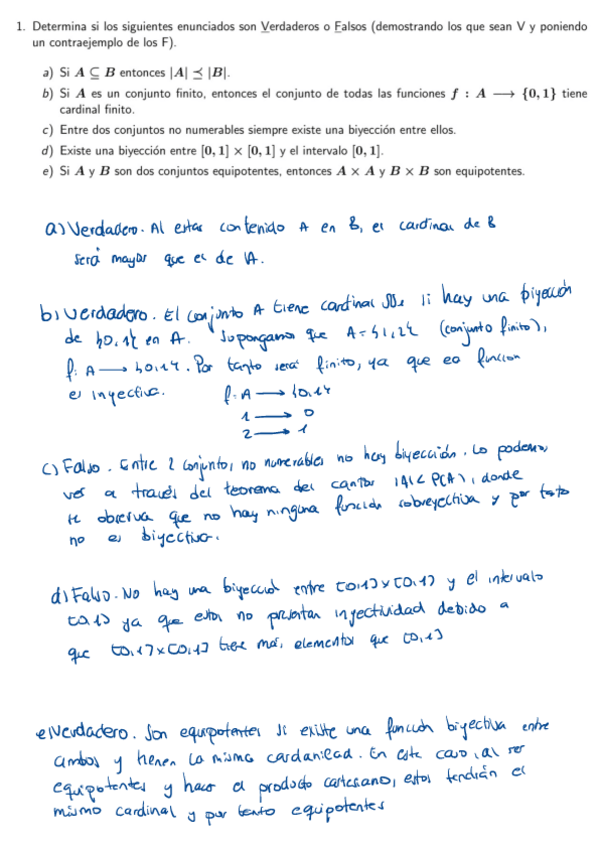 1. Determina si los siguientes enunciados son Verdaderos o Falsos (demostrando los que sean V y poniendo
un contraejemplo de los F).
a) Si A ⊆ B entonces |A| ⪯ |B|.
b) Si A es un conjunto finito, entonces el conjunto de todas las funciones f : A ⟶ {0, 1} tiene
cardinal finito.
c) Entre dos conjuntos no numerables siempre existe una biyección entre ellos.
d) Existe una biyección entre [0, 1] × [0, 1] y el intervalo [0, 1].
e) Si A y B son dos conjuntos equipotentes, entonces A × A y B × B son equipotentes.
a) Verdadero. Al estar contenido A en B, el cardinal de B
será mayor que el de A.
b) Verdadero. El conjunto A tiene cardinal si hay una biyección
de {0,1} en A. Supongamos que A = {1,2} (conjunto finito),
f: A ⟶ {0,1}. Por tanto será finito, ya que la función
es inyectiva. f: A ⟶ {0,1}
1 ⟶ 0
2 ⟶ 1
c) Falso. Entre 2 conjuntos no numerables no hay biyección. Lo podemos
ver a través del teorema de cantor |A| < P(A), donde
se observa que no hay ninguna función sobreyectiva y por tanto
no es biyectiva.
d) Falso. No hay una biyección entre [0,1] × [0,1] y el intervalo
[0,1] ya que estos no presentan inyectividad debido a
que [0,1] × [0,1] tiene más elementos que [0,1]
e) Verdadero. Son equipotentes si existe una función biyectiva entre
ambos y tienen la misma cardinalidad. En este caso, al ser
equipotentes y hacer el producto cartesiano, estos tendrán el
mismo cardinal y por tanto equipotentes